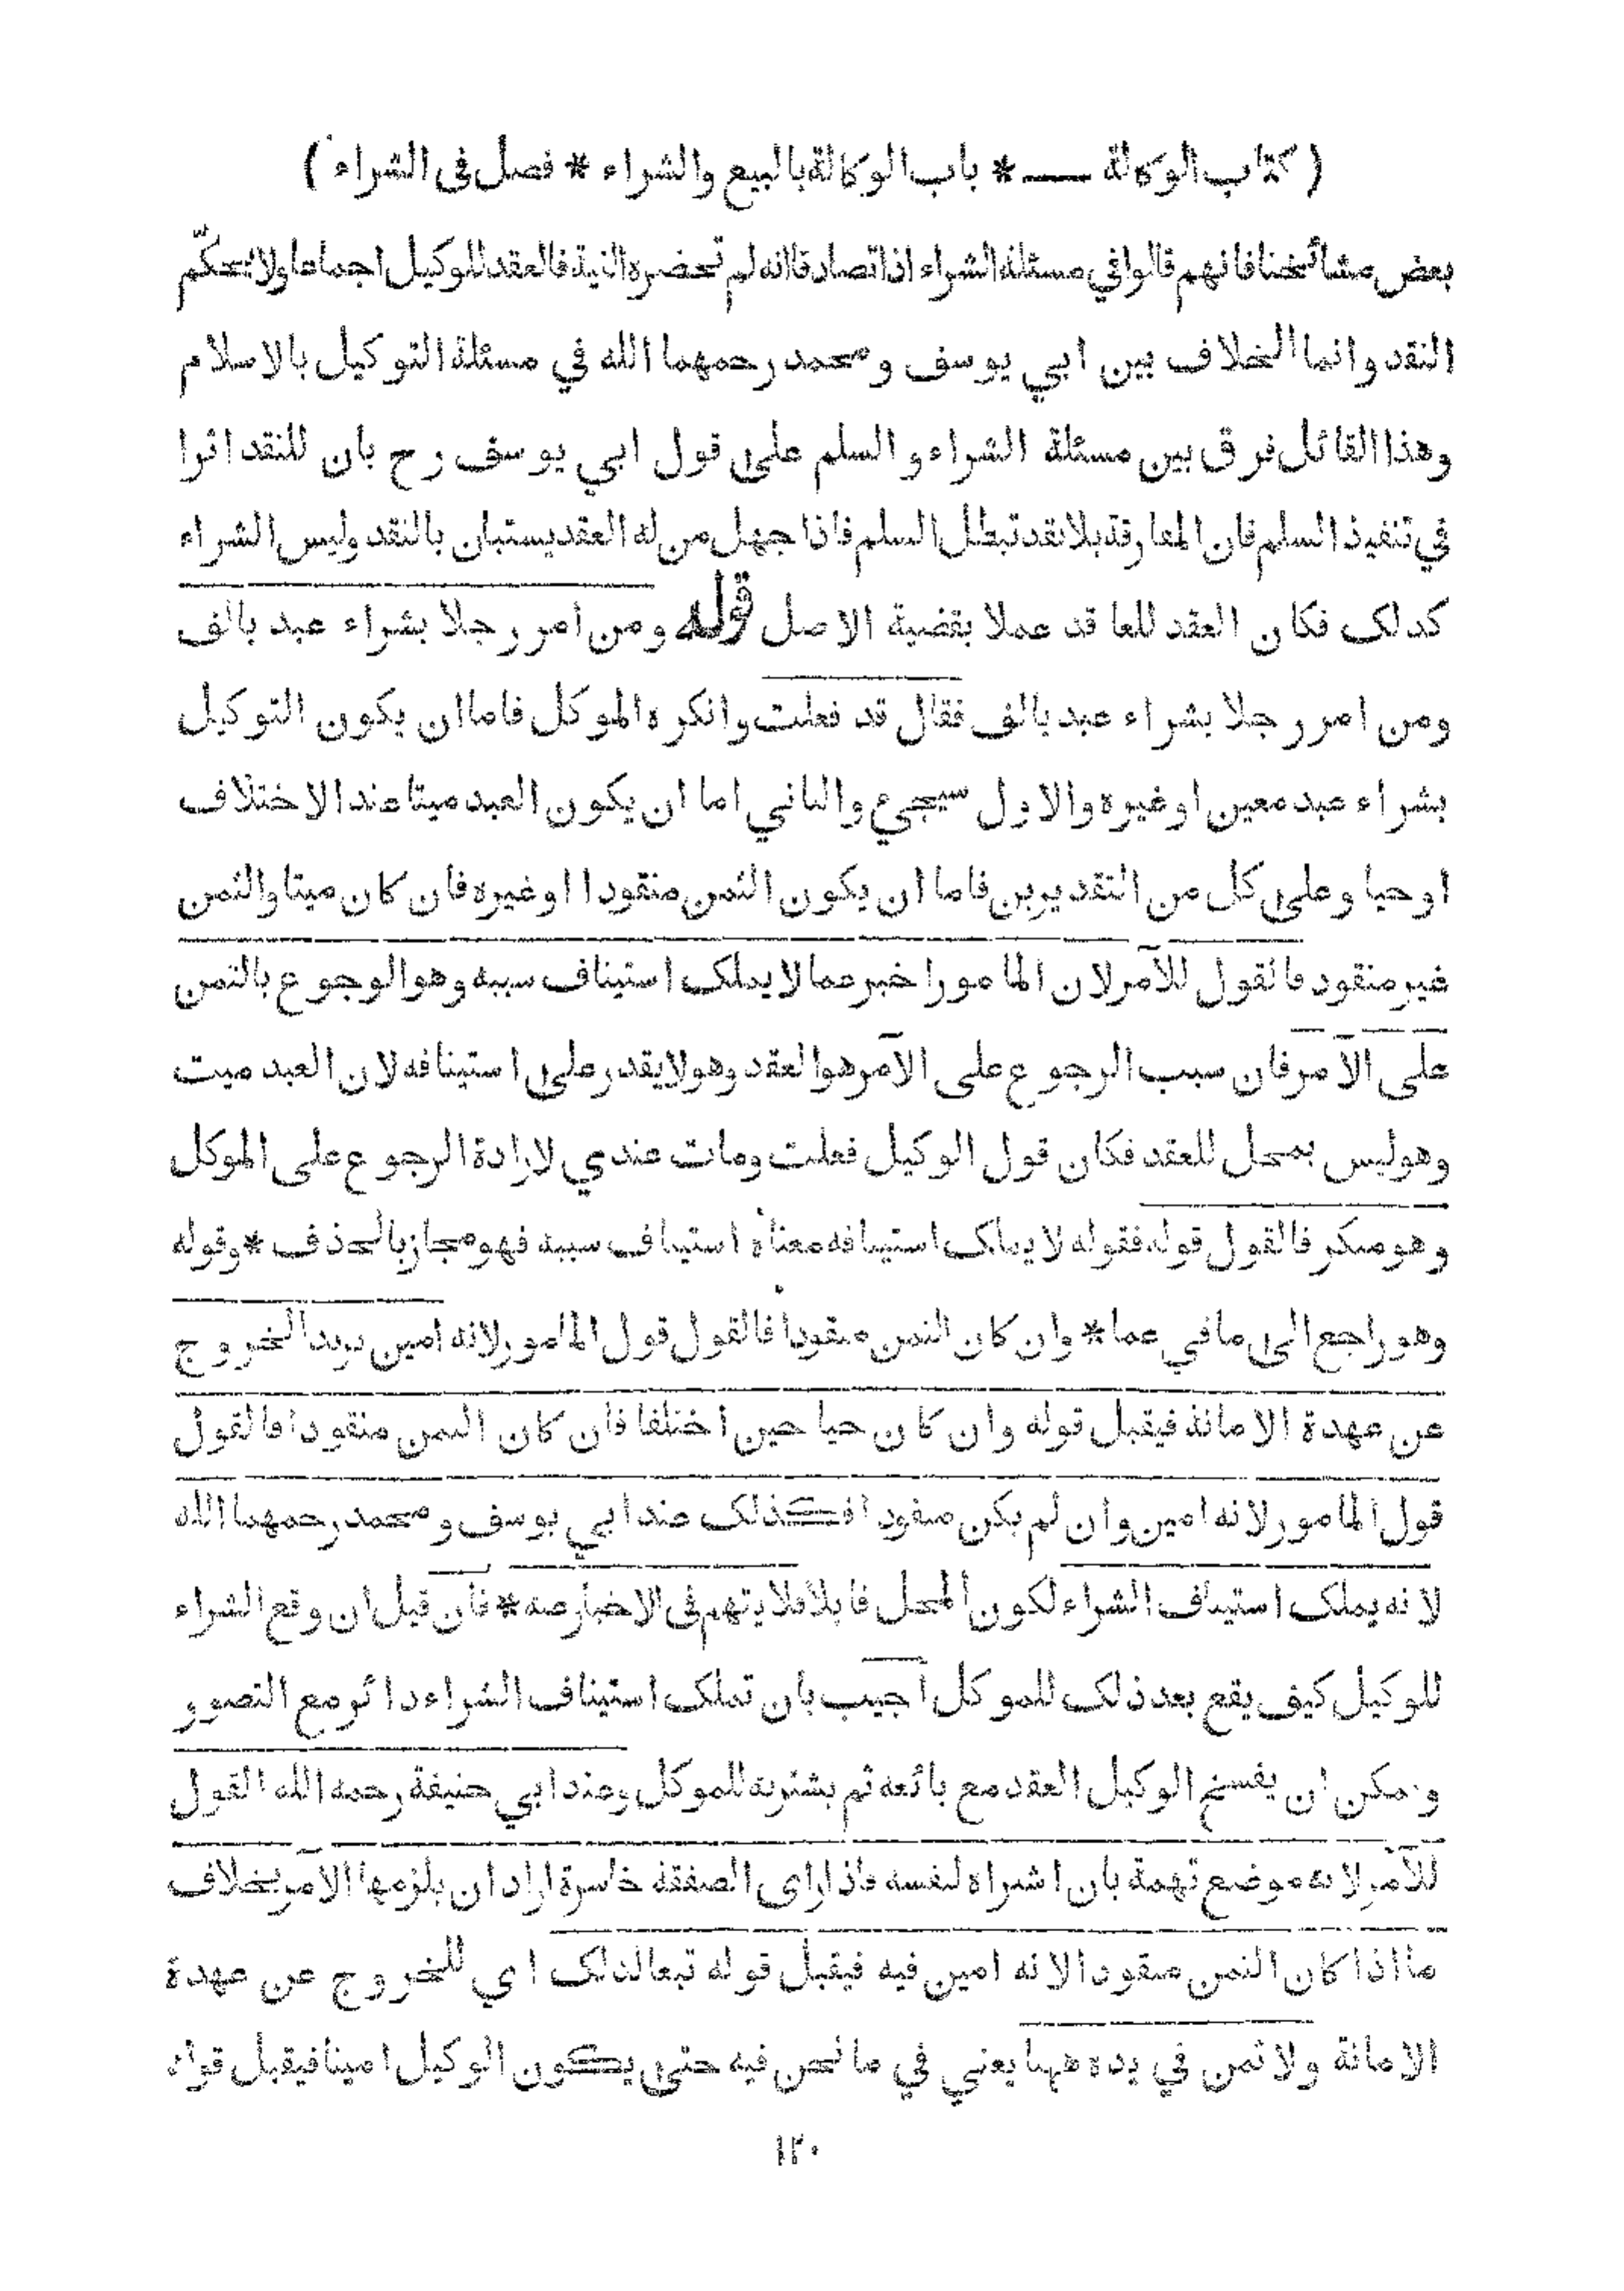 ( كتاب الوكالة ـــ * باب الوكالة بالبيع والشراء * فصل فى الشراء )
بعض مشائخنا فانهم قالوا في مسئلة الشراء اذا تصادقا انه لم تحضره النية فالعقد للوكيل اجماعا ولا يحكّم
النقد وانما الخلاف بين ابي يوسف ومحمد رحمهما الله في مسئلة التوكيل بالاسلام
وهذا القائل فرق بين مسئلة الشراء والسلم على قول ابي يوسف رح بان للنقد اثرا
في تنفيذ السلم فان المفارقة بلا نقد تبطل السلم فاذا جهل من له العقد يستبان بالنقد وليس الشراء
كذلك فكان العقد للعاقد عملا بقضية الاصل قوله ومن امر رجلا بشراء عبد بالف
ومن امر رجلا بشراء عبد بالف فقال قد فعلت وانكره الموكل فاما ان يكون التوكيل
بشراء عبد معين او غيره والاول سيجيء والثاني اما ان يكون العبد ميتا عند الاختلاف
او حيا وعلى كل من التقديرين فاما ان يكون الثمن منقودا او غيره فان كان ميتا والثمن
غير منقود فالقول للآمر لان المامور اخبر عما لا يملك استيناف سببه وهو الرجوع بالثمن
على الآمر فان سبب الرجوع على الآمر هو العقد وهو لا يقدر على استينافه لان العبد ميت
وهو ليس بمحل للعقد فكان قول الوكيل فعلت ومات عندي لارادة الرجوع على الموكل
وهو منكر فالقول قوله فقوله لا يملك استينافه معناه استيناف سببه فهو مجاز بالحذف * وقوله
وهو راجع الى ما في عما * وان كان الثمن منقودا فالقول قول المامور لانه امين يريد الخروج
عن عهدة الامانة فيقبل قوله وان كان حيا حين اختلفا فان كان الثمن منقودا فالقول
قول المامور لانه امين وان لم يكن منقودا فكذلك عند ابي يوسف ومحمد رحمهما الله
لانه يملك استيناف الشراء لكون المحل قابلا فلا يتهم فى الاخبار عنه * فان قيل ان وقع الشراء
للوكيل كيف يقع بعد ذلك للموكل اجيب بان تملك استيناف الشراء دائر مع التصور
ويمكن ان يفسخ الوكيل العقد مع بائعه ثم يشتريه للموكل وعند ابي حنيفة رحمه الله القول
للآمر لانه موضع تهمة بان اشتراه لنفسه فاذا راى الصفقة خاسرة اراد ان يلزمها الآمر بخلاف
ما اذا كان الثمن منقودا لانه امين فيه فيقبل قوله تبعا لذلك اي للخروج عن عهدة
الامانة ولا ثمن في يده ههنا يعني في ما نحن فيه حتى يكون الوكيل امينا فيقبل قوله
١٢٠